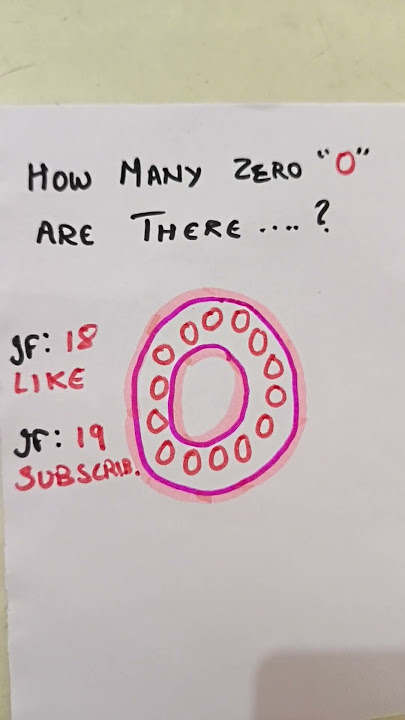 HOW MANY ZERO "0"
ARE THERE ....?
gF: 18
LIKE
gF: 19
SUBSCRIB.